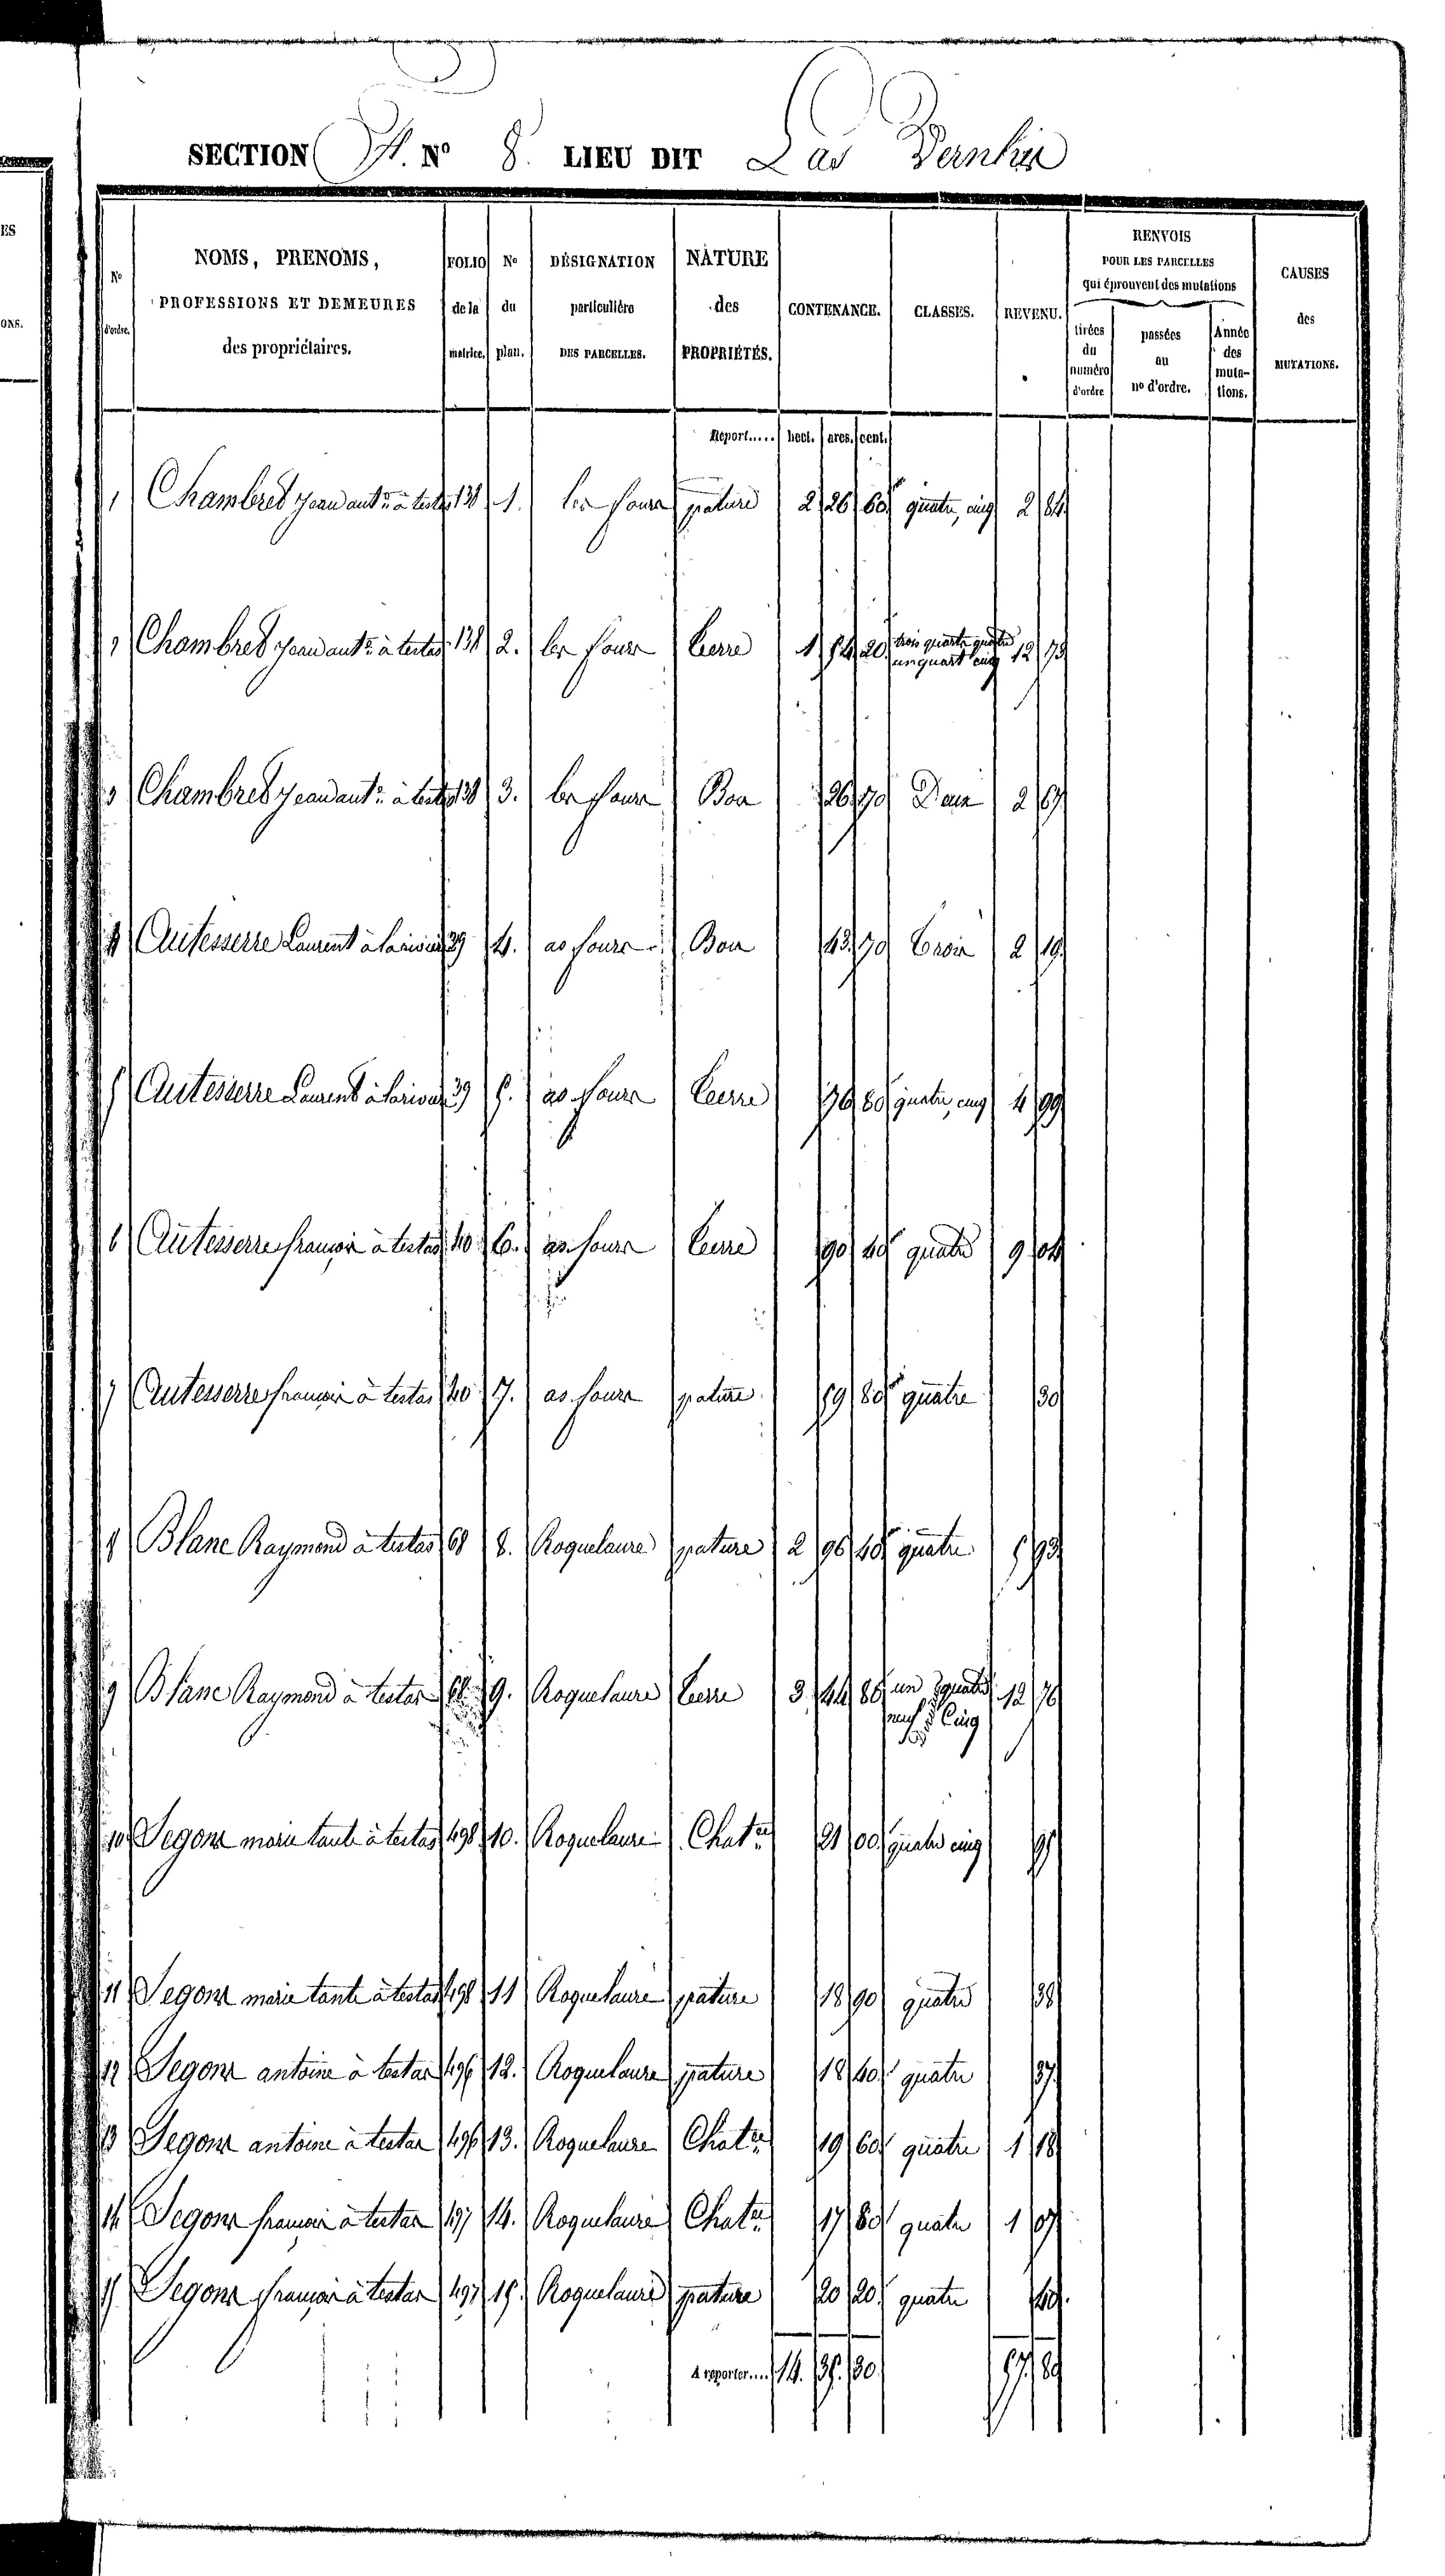 SECTION A. N° 8. LIEU DIT Las
N° d'ordre.
NOMS, PRENOMS, PROFESSIONS ET DEMEURES des propriétaires.
FOLIO de la matrice.
N° du plan.
DÉSIGNATION particulière DES PARCELLES.
NATURE des PROPRIÉTÉS.
CONTENANCE.
CLASSES.
REVENU.
RENVOIS POUR LES PARCELLES qui éprouvent des mutations
tirées du numéro d'ordre
passées au n° d'ordre.
Année des mutations.
CAUSES des MUTATIONS.
Report..... hect. ares. cent.
1 Chambret jean ant.e à testas 131 1. pature 2 26 60 quatre, cinq 2 84
2 Chambret jean ant.e à testas 131 2. terre 1 54 20 trois quarts quatre un quart cinq 12 73
3 Chambret jean ant.e à testas 131 3. Bois 26 70 Deux 2 67
4 Autesserre Laurent 39 4. Bois 43 70 Trois 2 19
5 Autesserre Laurent 39 5. terre 76 80 quatre, cinq 4 99
6 Autesserre françois à testas 40 6. terre 90 40 quatre 9 04
7 Autesserre françois à testas 40 7. pature 59 80 quatre 30
8 Blanc Raymond à testas 68 8. Roquelaure pature 2 96 40 quatre 5 93
9 Blanc Raymond à testas 68 9. Roquelaure terre 3 44 80 un quatre neuf cinq 12 76
10 Segons marie tante à testas 498 10. Roquelaure Chat.re 21 00 quatre cinq 95
11 Segons marie tante à testas 498 11 Roquelaure pature 18 90 quatre 38
12 Segons antoine à testas 496 12. Roquelaure pature 18 40 quatre 37
13 Segons antoine à testas 496 13. Roquelaure Chat.re 19 60 quatre 1 18
14 Segons françois à testas 497 14. Roquelaure Chat.re 17 80 quatre 1 07
15 Segons françois à testas 497 15. Roquelaure pature 20 20 quatre 40
A reporter.... 14. 35. 30 57 80